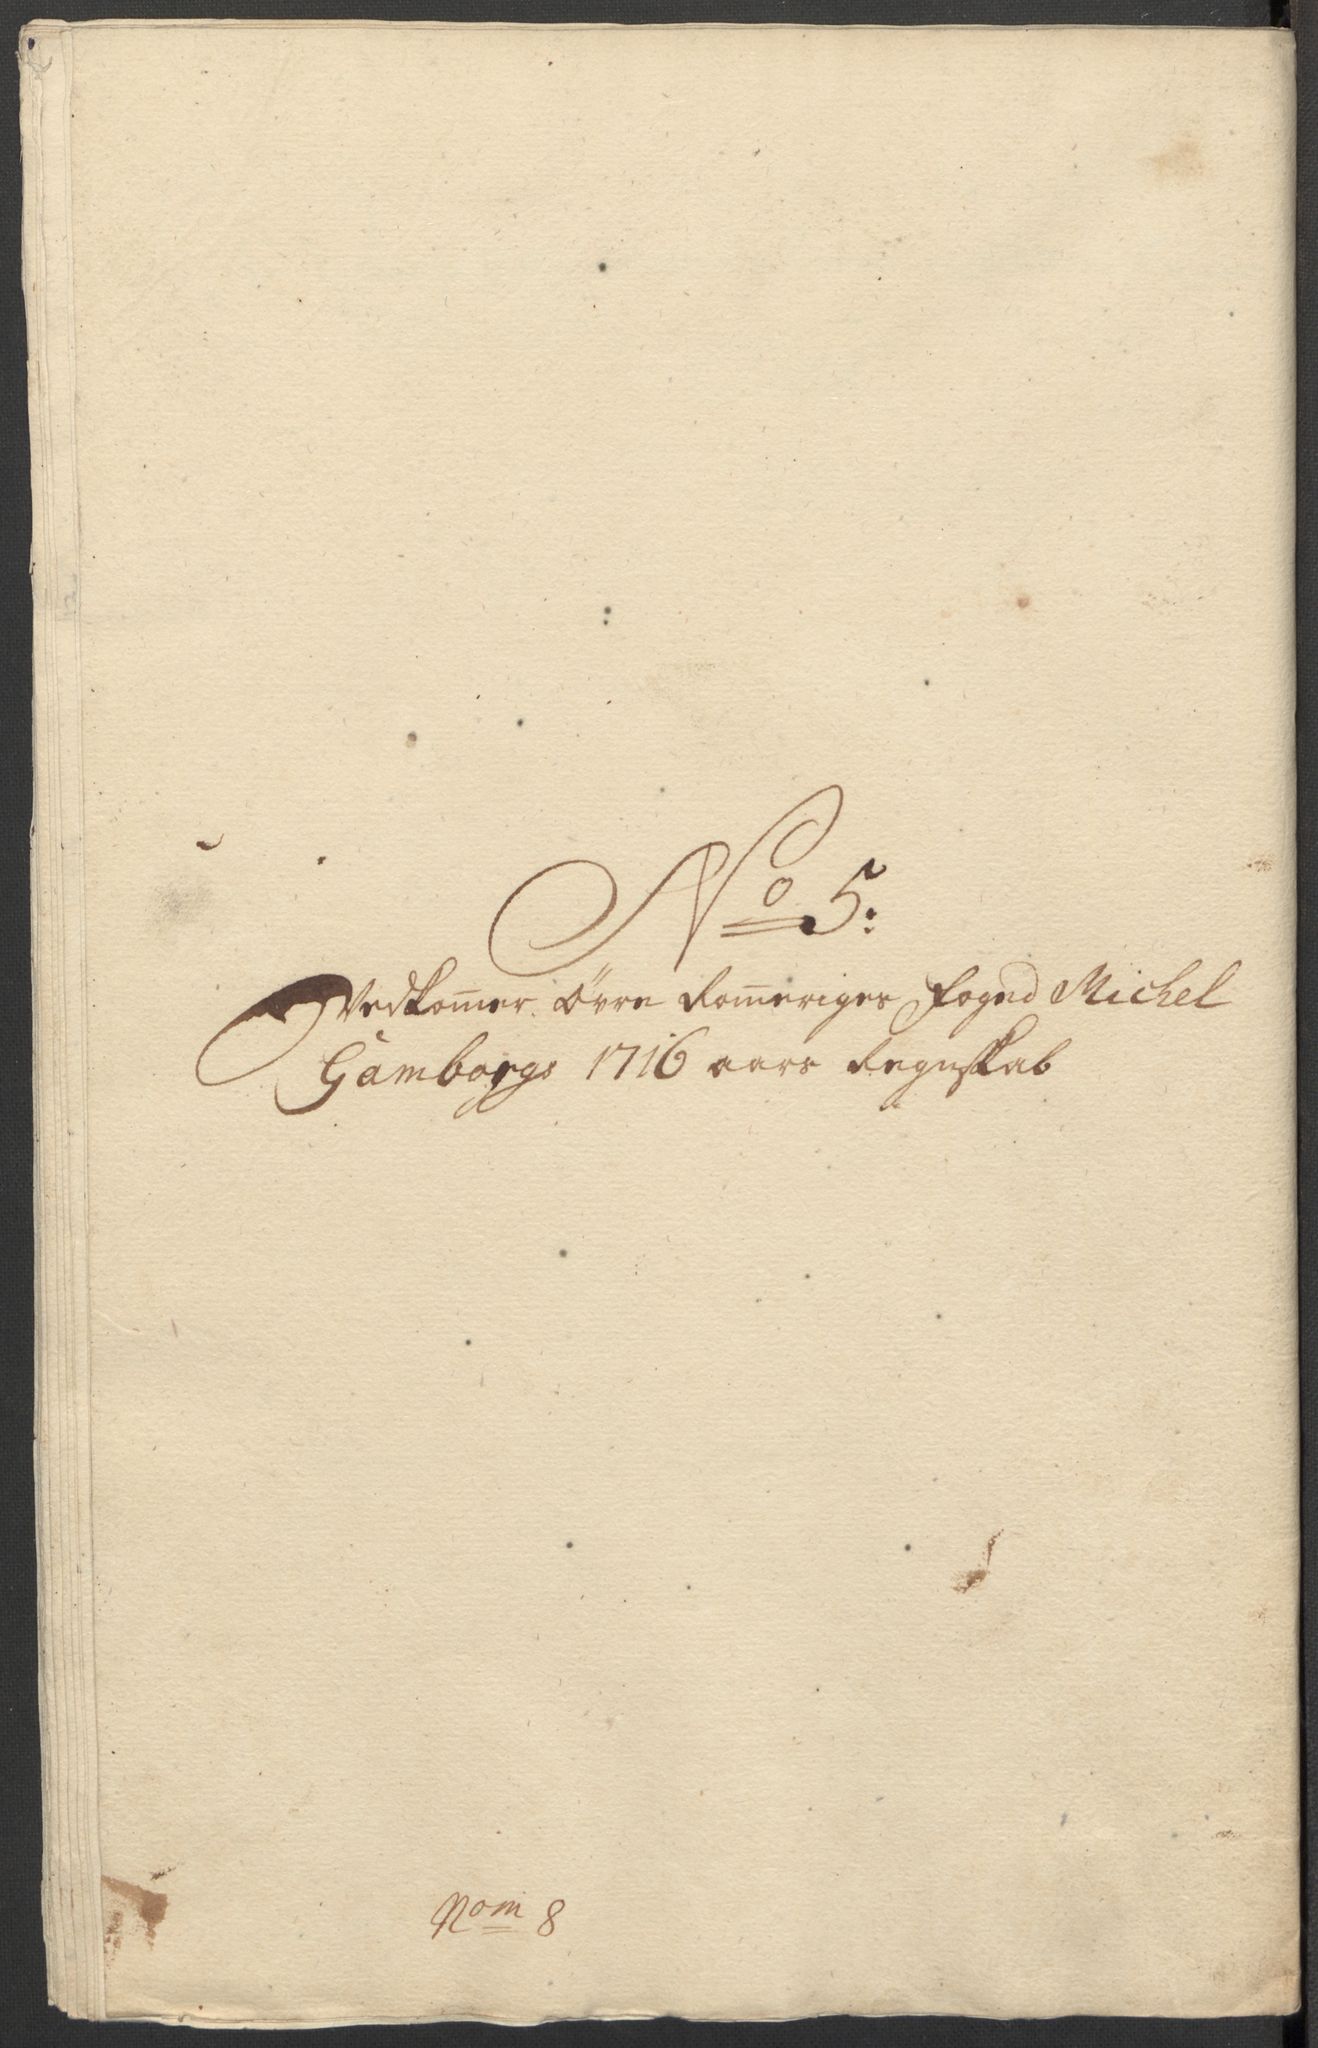 No 5:
Vedkom̄er Øvre Rom̄eriges Foged Michel
Gamborgs 1716 aars Regnskab
Nom 8